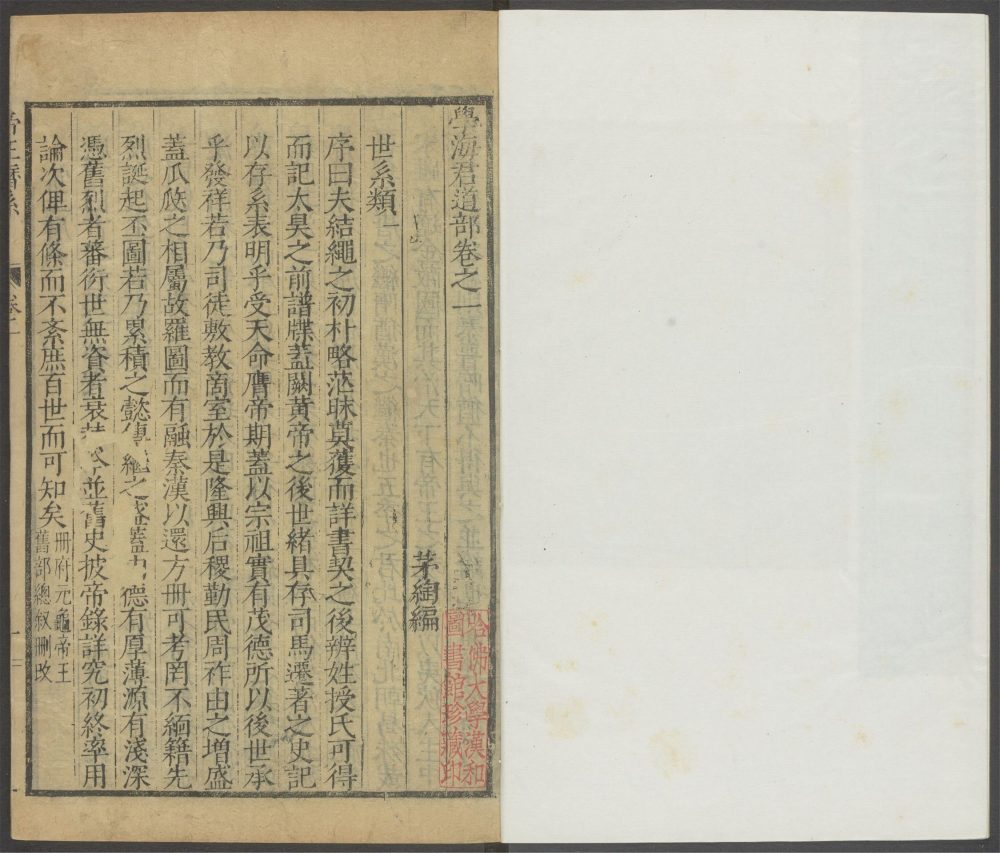 學海君道部卷之一
茅綯編
哈佛大學漢和
圖書館珍藏印
世系類一
序曰夫結繩之初朴略茫昧莫獲而詳書契之後辨姓授氏可得
而記太昊之前譜牒蓋闕黃帝之後世緒具存司馬遷著之史記
以存系表明乎受天命膺帝期蓋以宗祖實有茂德所以後世承
乎發祥若乃司徒敷教啇室於是隆興后稷勤民周祚由之增盛
蓋瓜瓞之相屬故羅圖而有融秦漢以還方冊可考罔不緬籍先
烈誕起丕圖若乃累積之懿傳繼之蓋德有厚薄源有淺深
憑舊烈者蕃衍世無資者衰並舊史披帝錄詳究初終率用
論次俾有條而不紊庶百世而可知矣
冊府元龜帝王
舊部總叙刪改
帝王曆系
卷一
一